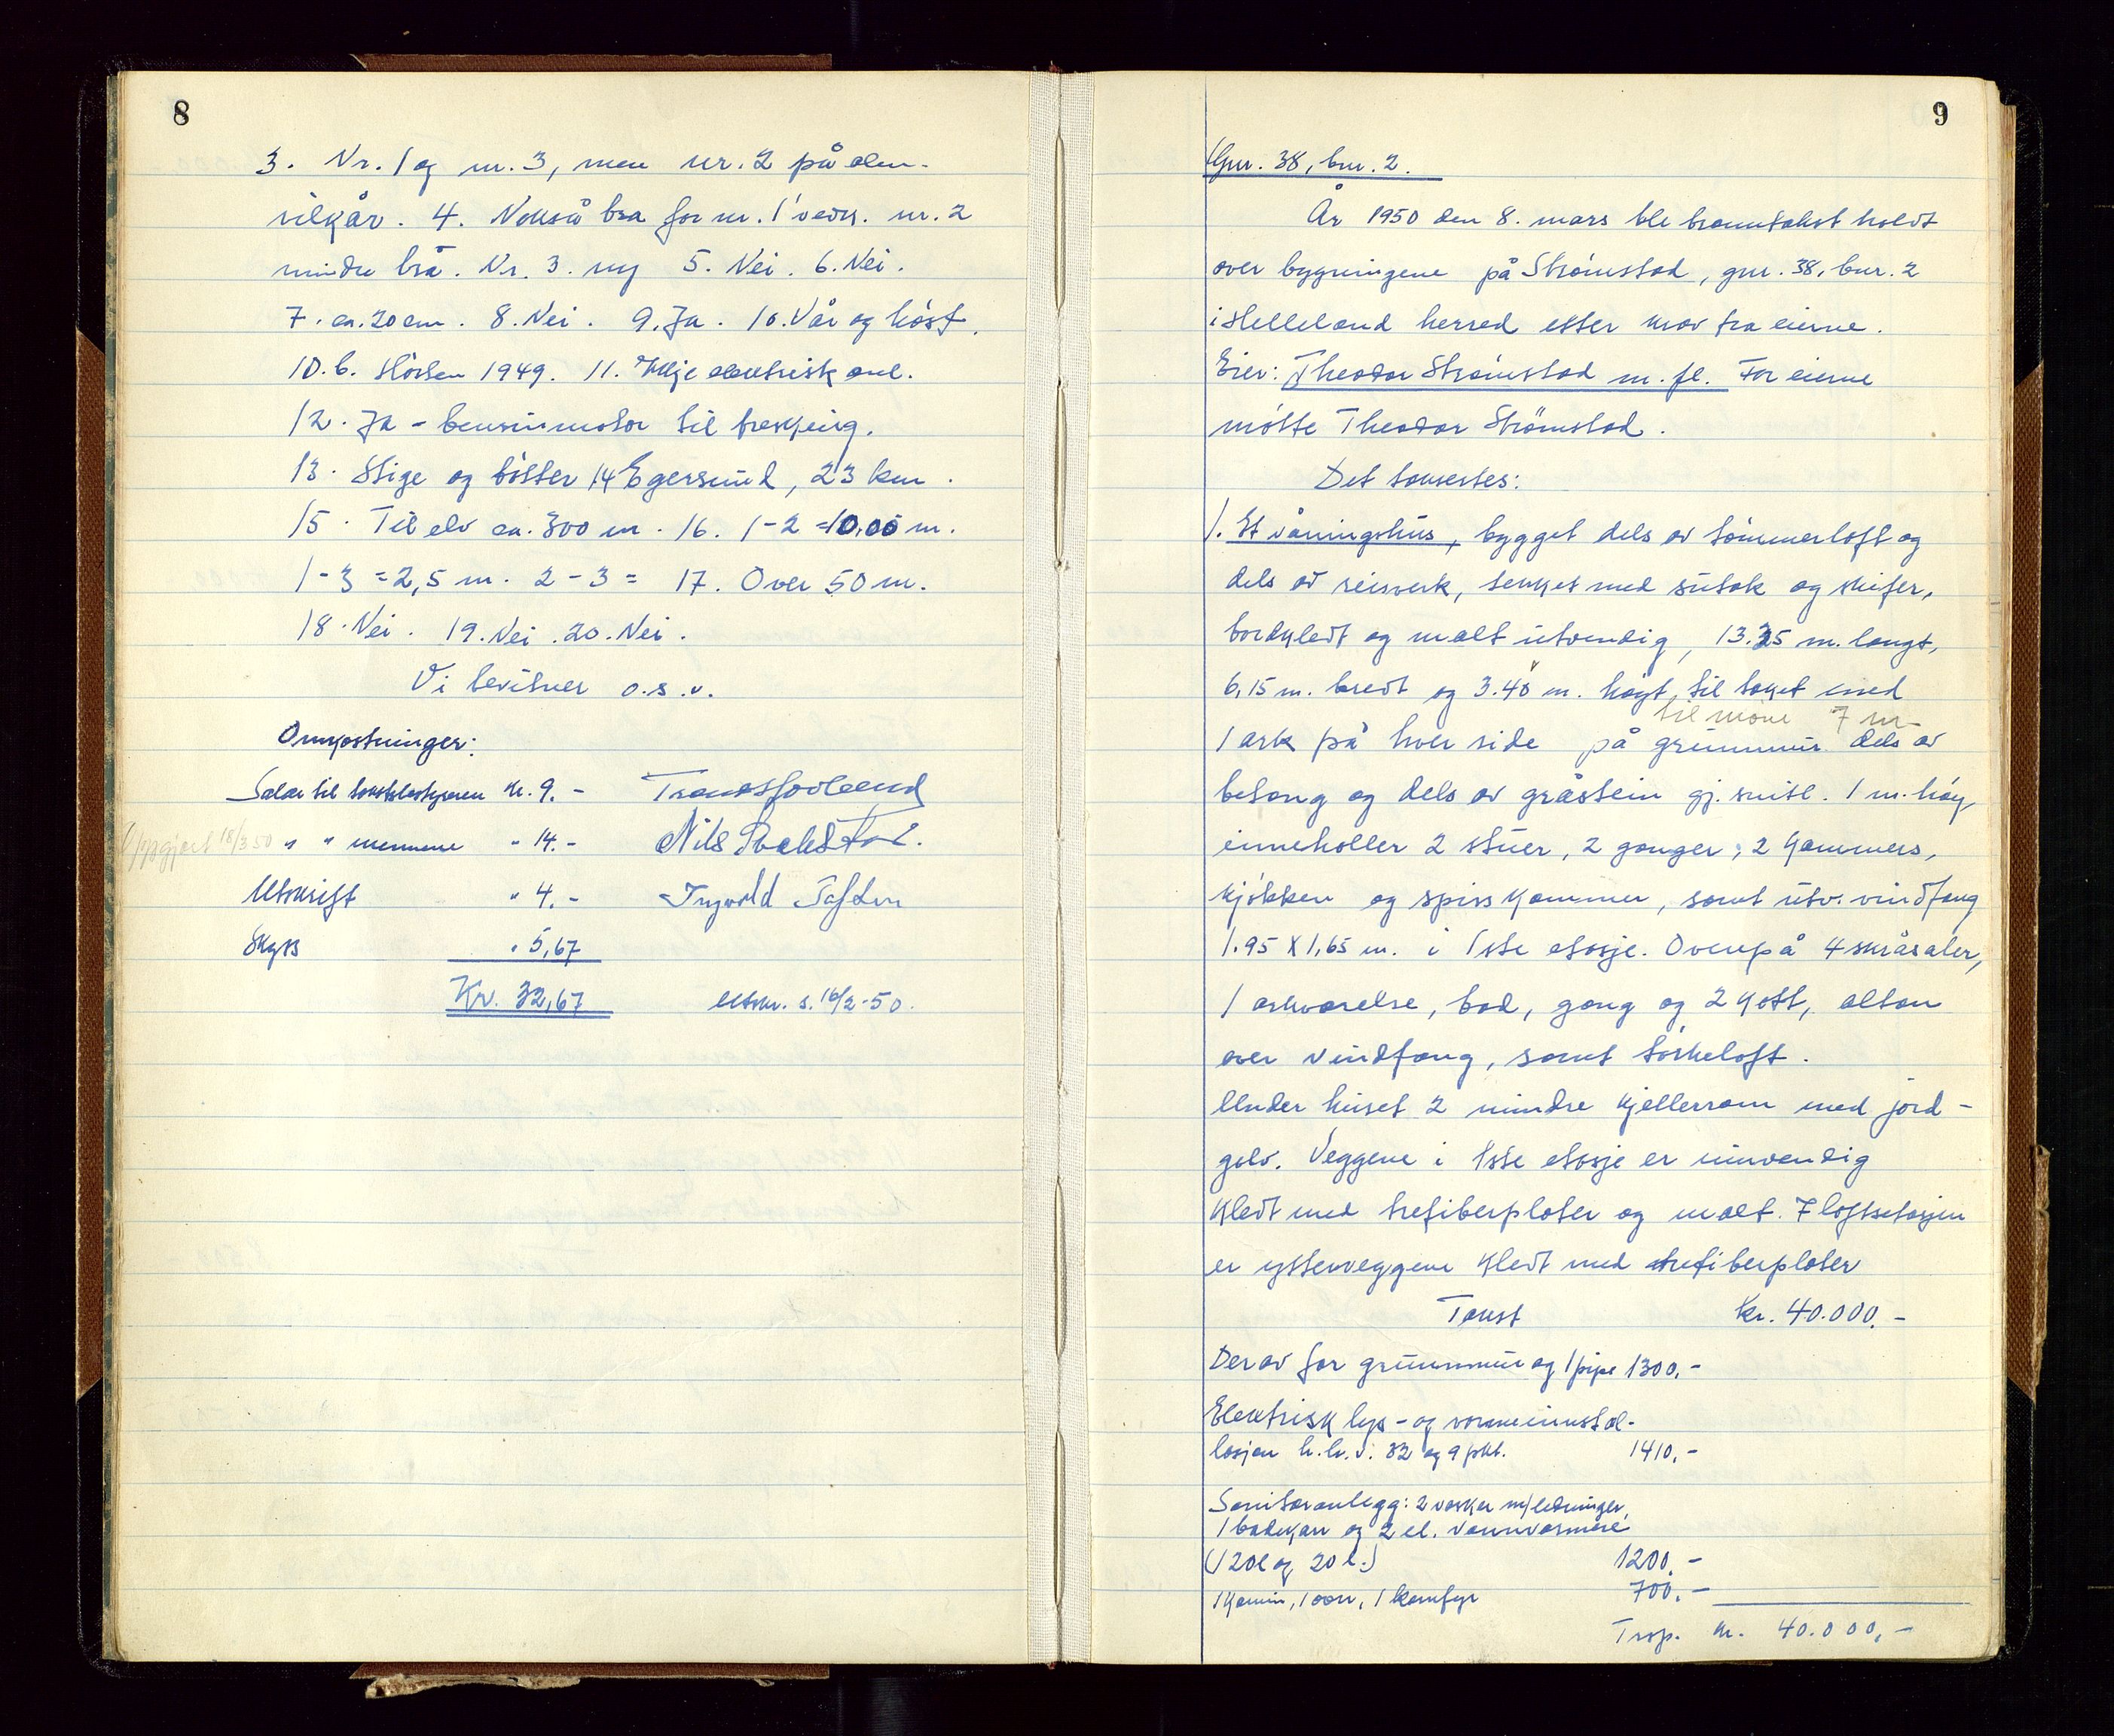 8
3. Nr. 1 og nr. 3, men nr. 2 på elen-
vilkår. 4. Nokså bra for nr. 1 vedk. nr. 2
mindre bra. Nr. 3. ny 5. Nei. 6. Nei.
7. ca. 20 cm. 8. Nei. 9. Ja. 10. Vår og høst.
10.b. Høsten 1949. 11. Ikkje elektrisk anl.
12. Ja - bensinmotor til tresking.
13. Stige og bøtter 14 Egersund, 23 km.
15. Til elv ca. 300 m. 16. 1-2 = 10.00 m.
1-3 = 2,5 m. 2-3 = 17. Over 50 m.
18. Nei. 19. Nei. 20. Nei.
Vi bevitner o.s.v.
Omkostninger:
Salær til takstbestyreren kr. 9.-
" " mennene " 14.- Nils
Oppgjort 18/3 50
Utskrift " 4.- Ingvald
Skyss " 5,67
Kr. 32,67 Utskr. s. 16/2-50.
9
Gnr. 38, bnr. 2.
År 1950 den 8. mars ble branntakst holdt
over bygningene på Strømstad, gnr. 38, bnr. 2
i Helleland herred etter krav fra eierne.
Eier: Theodor Strømstad m. fl. For eierne
møtte Theodor Strømstad.
Det taksertes:
1. Et våningshus, bygget dels av tømmerloft og
dels av reisverk, tekket med sutak og skifer,
bordkledt og malt utvendig, 13.35 m. langt,
6,15 m. bredt og 3.40 m. høgt til taket med
til møne 7 m
1 ark på hver side på grunnmur dels av
betong og dels av gråstein gj.snitl. 1 m. høg,
inneholler 2 stuer, 2 ganger, 2 kammers,
kjøkken og spisskammer, samt utv. vindfang
1.95 X 1,65 m. i 1ste etasje. Ovenpå 4 skråsaler,
1 arkværelse, bad, gang og 2 kott, altan
over vindfang, samt tørkeloft.
Under huset 2 mindre kjellerrom med jord-
golv. Veggene i 1ste etasje er innvendig
kledt med trefiberplater og malt. I loftsetasjen
er ytterveggene kledt med trefiberplater
Takst kr. 40.000.-
Derav for grunnmur og 1 pipe 1300.-
Elektrisk lys- og varmeinnstal-
lasjon h.h.v. 32 og 9 pkt. 1410.-
Sanitæranlegg: 2 vasker m/ledninger,
1 badekar og 2 el. vannvarmere
(120 l og 20 l.) 1200.-
1 kamin, 1 ovn, 1 komfyr 700.-
Trsp. kr. 40.000,-